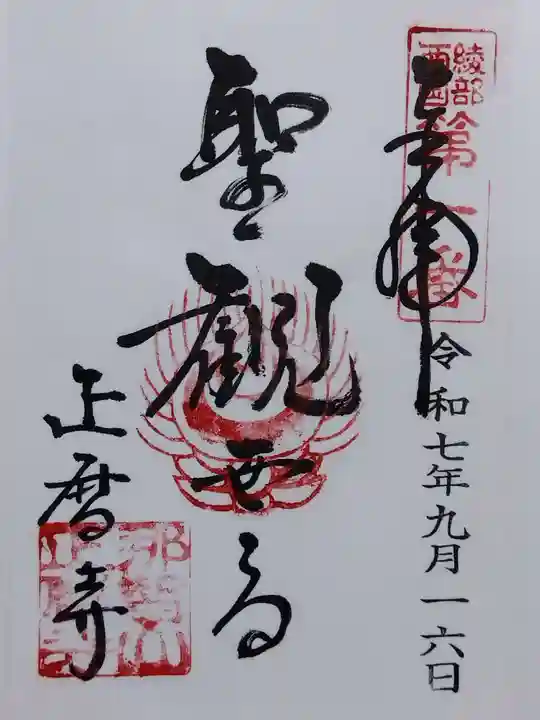 綾部
西国
第一番
奉拝
令和七年九月一六日
聖観世音
正暦寺